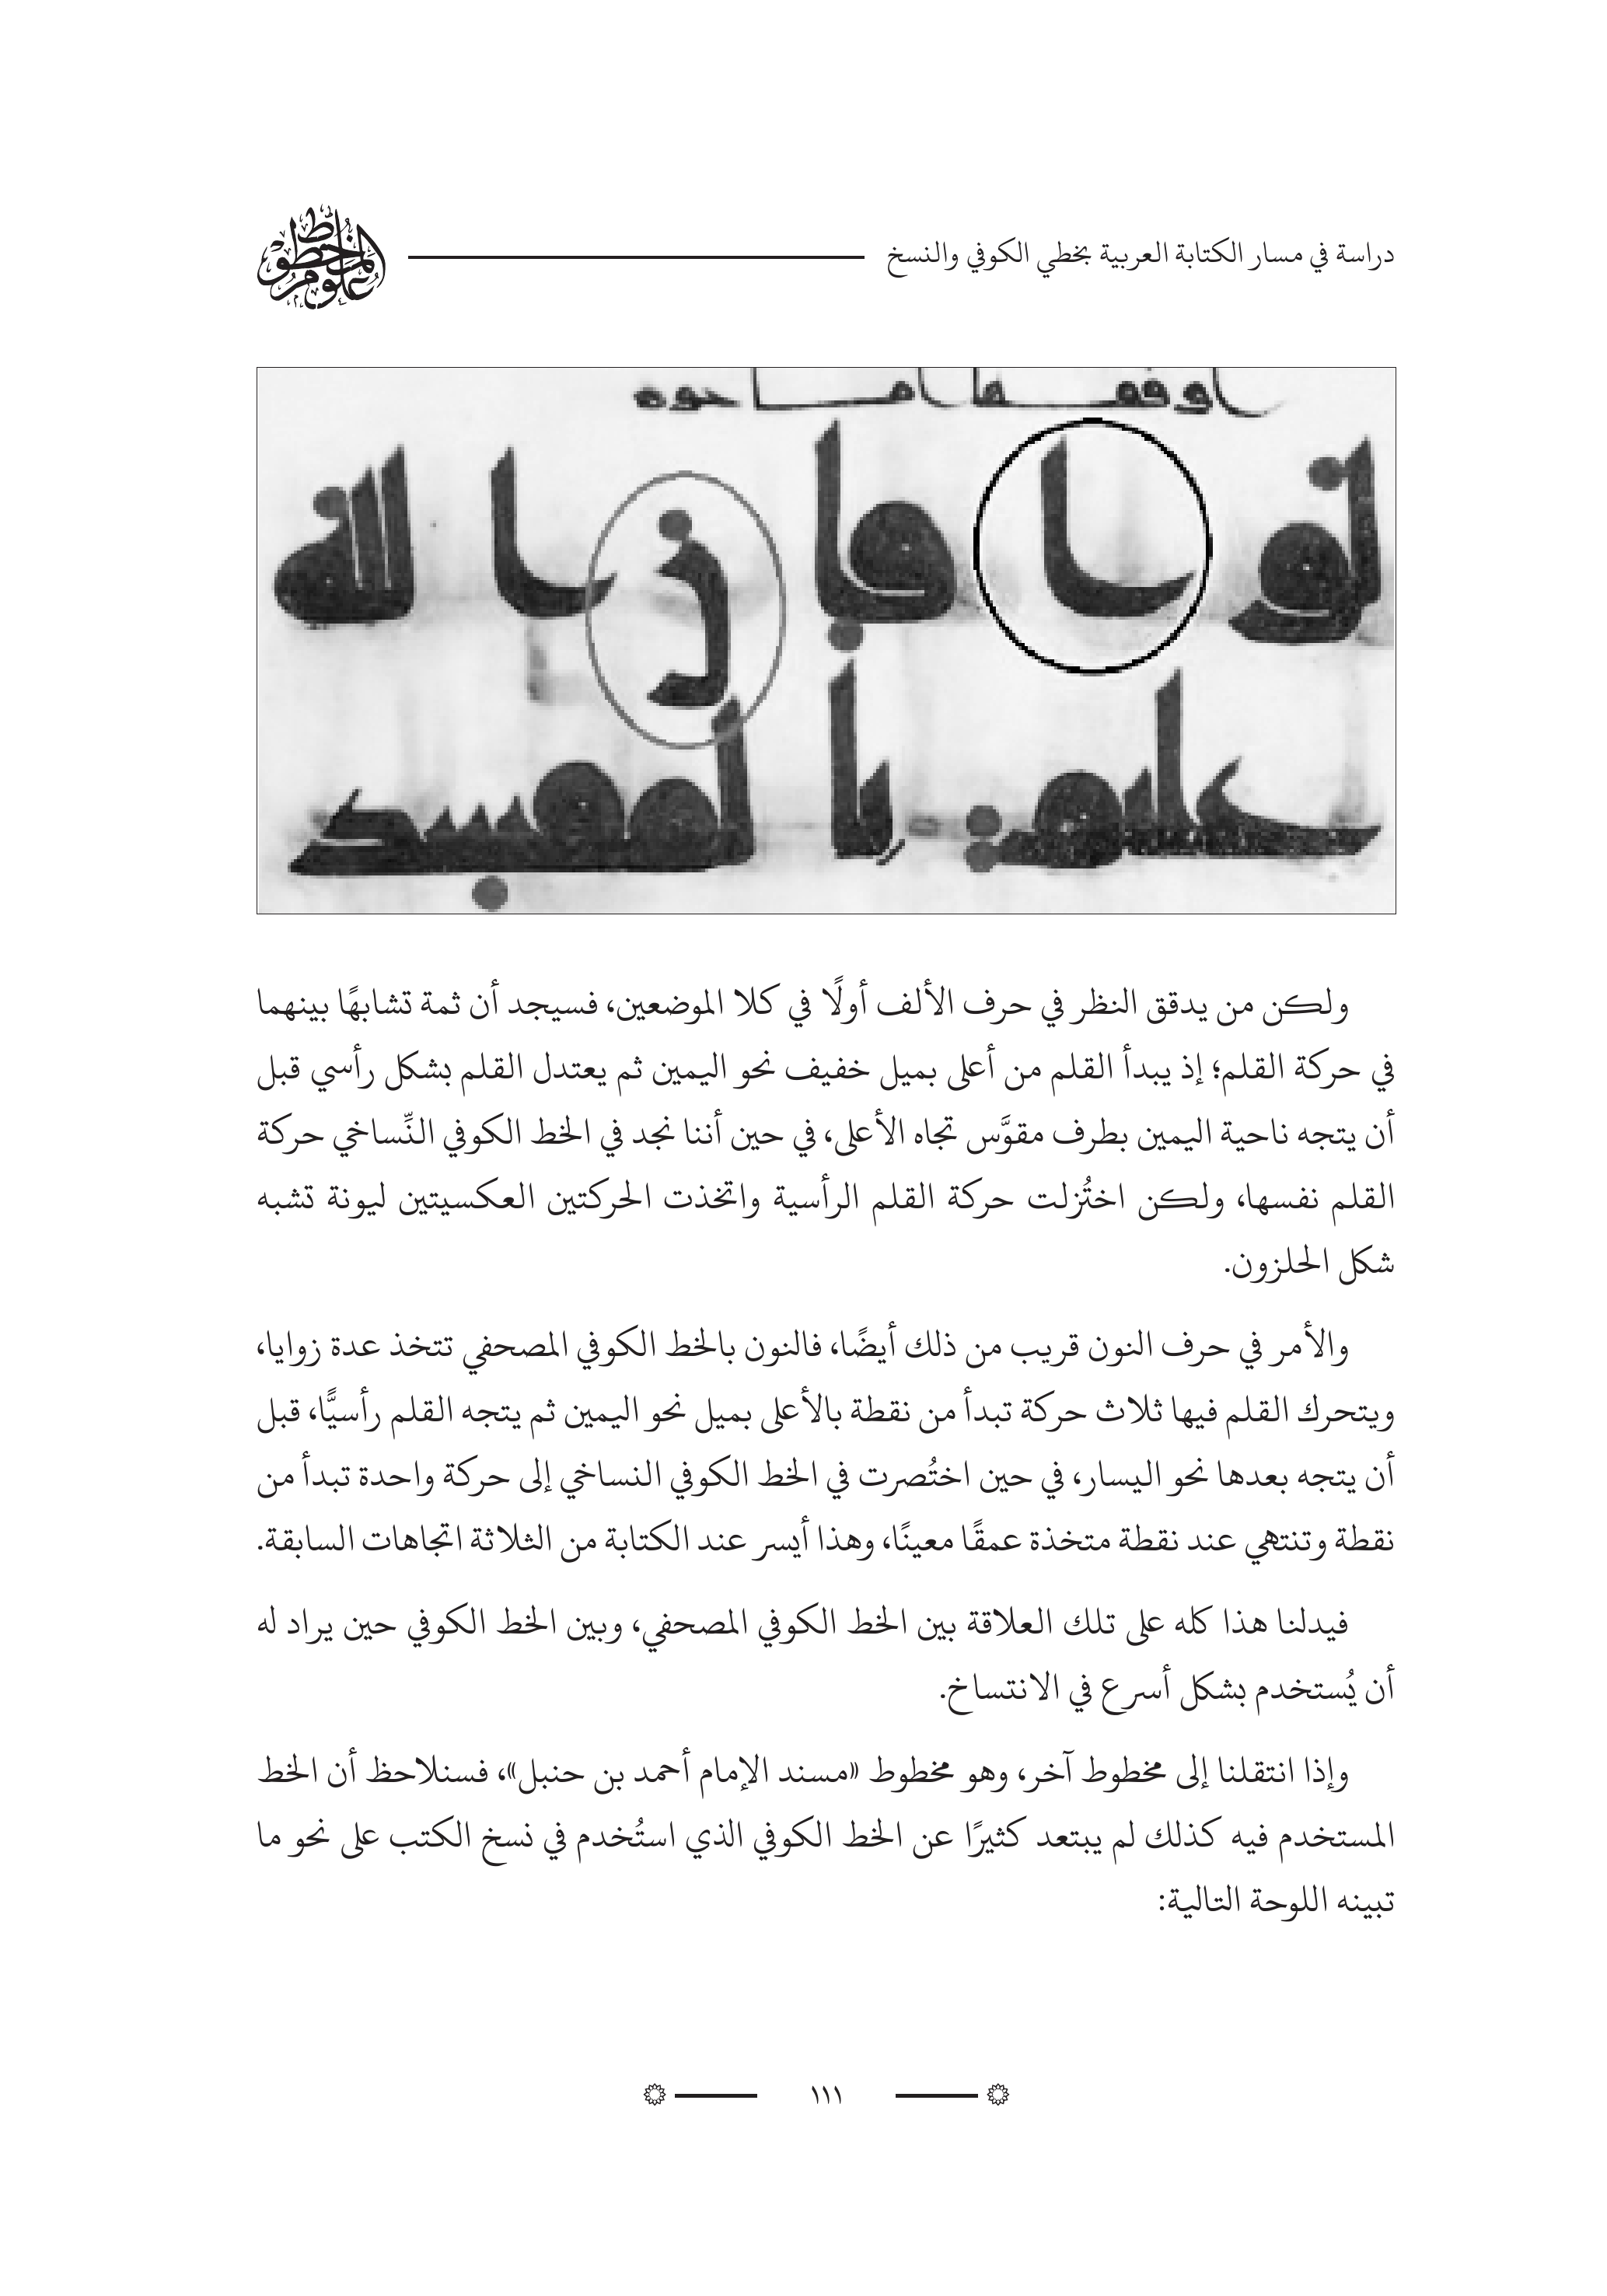 دراسة في مسار الكتابة العربية بخطي الكوفي والنسخ
علوم المخطوط
تولوا فإن الله
عليم بالمفسد
ولكن من يدقق النظر في حرف الألف أولًا في كلا الموضعين، فسيجد أن ثمة تشابهًا بينهما
في حركة القلم؛ إذ يبدأ القلم من أعلى بميل خفيف نحو اليمين ثم يعتدل القلم بشكل رأسي قبل
أن يتجه ناحية اليمين بطرف مقوَّس تجاه الأعلى، في حين أننا نجد في الخط الكوفي النِّساخي حركة
القلم نفسها، ولكن اختُزلت حركة القلم الرأسية واتخذت الحركتين العكسيتين ليونة تشبه
شكل الحلزون.
والأمر في حرف النون قريب من ذلك أيضًا، فالنون بالخط الكوفي المصحفي تتخذ عدة زوايا،
ويتحرك القلم فيها ثلاث حركة تبدأ من نقطة بالأعلى بميل نحو اليمين ثم يتجه القلم رأسيًّا، قبل
أن يتجه بعدها نحو اليسار، في حين اختُصرت في الخط الكوفي النساخي إلى حركة واحدة تبدأ من
نقطة وتنتهي عند نقطة متخذة عمقًا معينًا، وهذا أيسر عند الكتابة من الثلاثة اتجاهات السابقة.
فيدلنا هذا كله على تلك العلاقة بين الخط الكوفي المصحفي، وبين الخط الكوفي حين يراد له
أن يُستخدم بشكل أسرع في الانتساخ.
وإذا انتقلنا إلى مخطوط آخر، وهو مخطوط «مسند الإمام أحمد بن حنبل»، فسنلاحظ أن الخط
المستخدم فيه كذلك لم يبتعد كثيرًا عن الخط الكوفي الذي استُخدم في نسخ الكتب على نحو ما
تبينه اللوحة التالية:
١١١